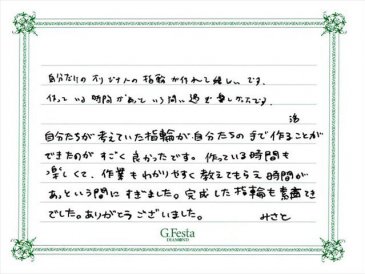 自分だけのオリジナルの指輪が作れて嬉しいです。
作っている時間があっという間に過ぎ楽しかったです。
自分たちが考えていた指輪が自分たちの手で作ることが
できたのがすごく良かったです。作っている時間も
楽しくて、作業もわかりやすく教えてもらえ時間が
あっという間にすぎました。完成した指輪も素敵
でした。ありがとうございました。 みさと
G.Festa
DIAMOND